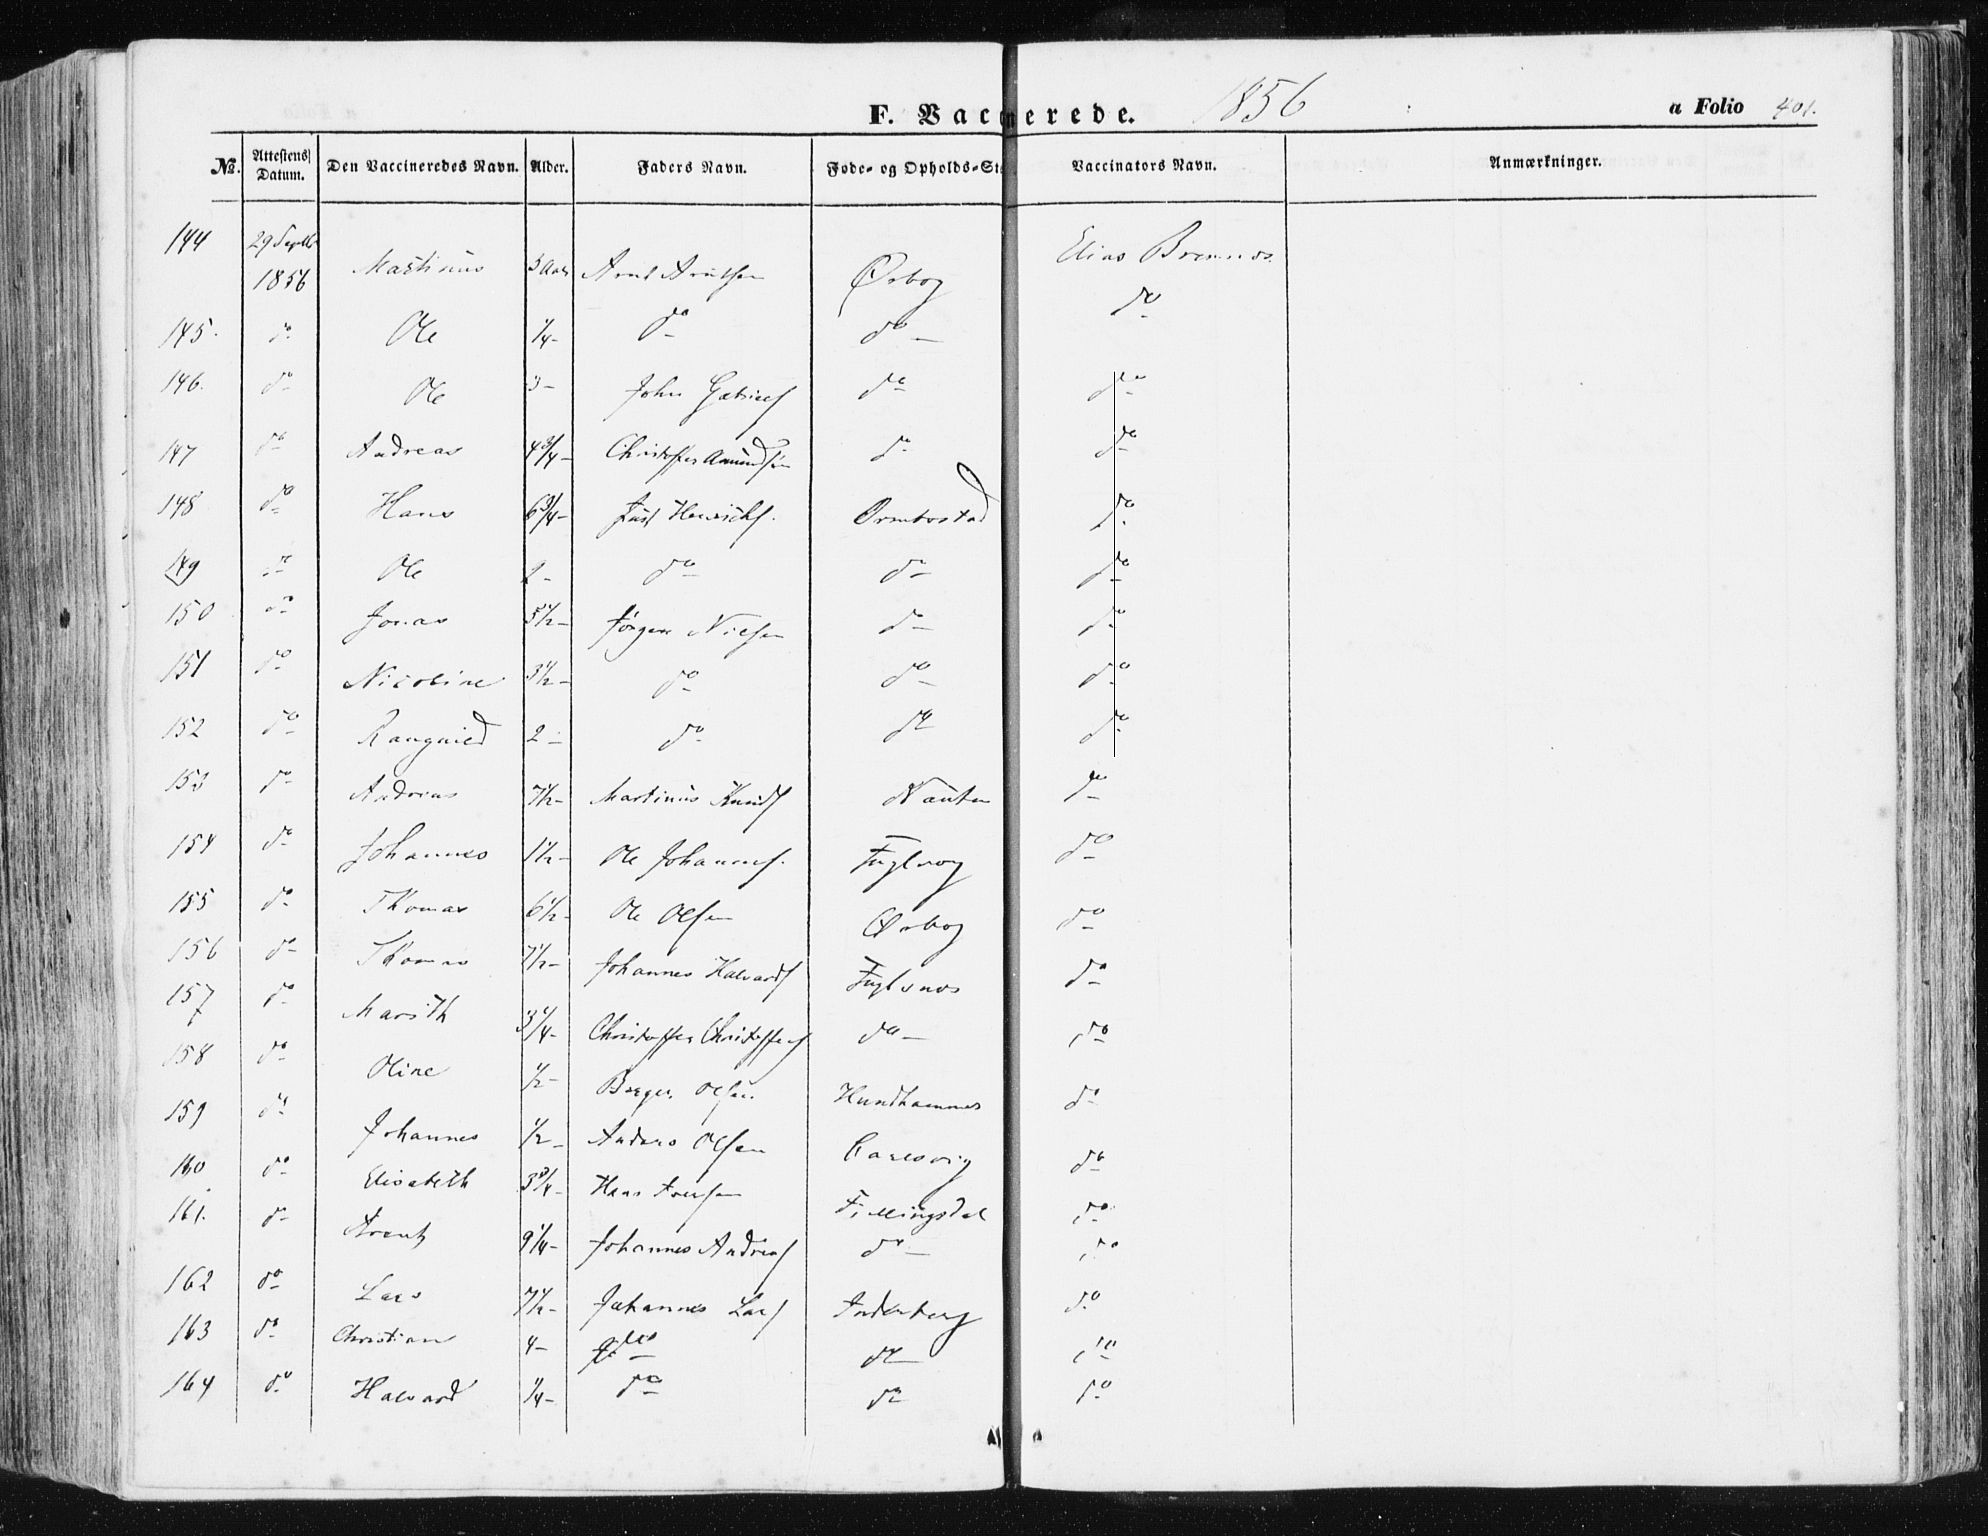 F. Vaccinerede. 1856 a Folio 401.
No. Attestens Datum. Den Vaccineredes Navn. Alder. Faders Navn. Føde- og Opholds-St Vaccinators Navn. Anmærkninger.
144 29 Septbr 1856 Martinus 3 Aar Arnt Arntsen Ørbog Elias Bremnes
do
145. do Ole 1/4 - do do -
146. do Ole 3 - John Gabrielf do do
147 do Andreas 4 3/4 - Christoffer Amundsen do do
148 do Hans 6 3/4 - Just Henrichf. Ormbostad do
149 do Ole 2 - do do do
150 do Jonas 5 1/2 - Jørgen Nielsen do do
151 do Nicoline 3 1/2 - do do do
152 do Rangnild 2 - do do do
153 do Andreas 7 1/2 - Martinus Knudf Nausten do
154 do Johannes 1 1/2 - Ole Johannesf. Fuglvog do
155 do Thomas 6 1/2 - Ole Olsen Ørbog do
156 do Thomas 7 1/2 - Johannes Halvardf Fuglsnes do
157 do Marith 3 1/4 - Christoffer Christofferf do - do
158 do Oline 1/2 - Berger Olsen Hundhammer do
159 do Johannes 1/2 - Anders Olsen Carlsvig do
160 do Elisabeth 3 3/4 - Hans Iversen Fillingsdal do
161. do Arent 9 1/4 - Johannes Andreasf do - do
162 do Lars 7 1/2 - Johannes Larsf Inderberg do
163 do Christian 4 - do do do
164 do Halvard 1/4 - do do do